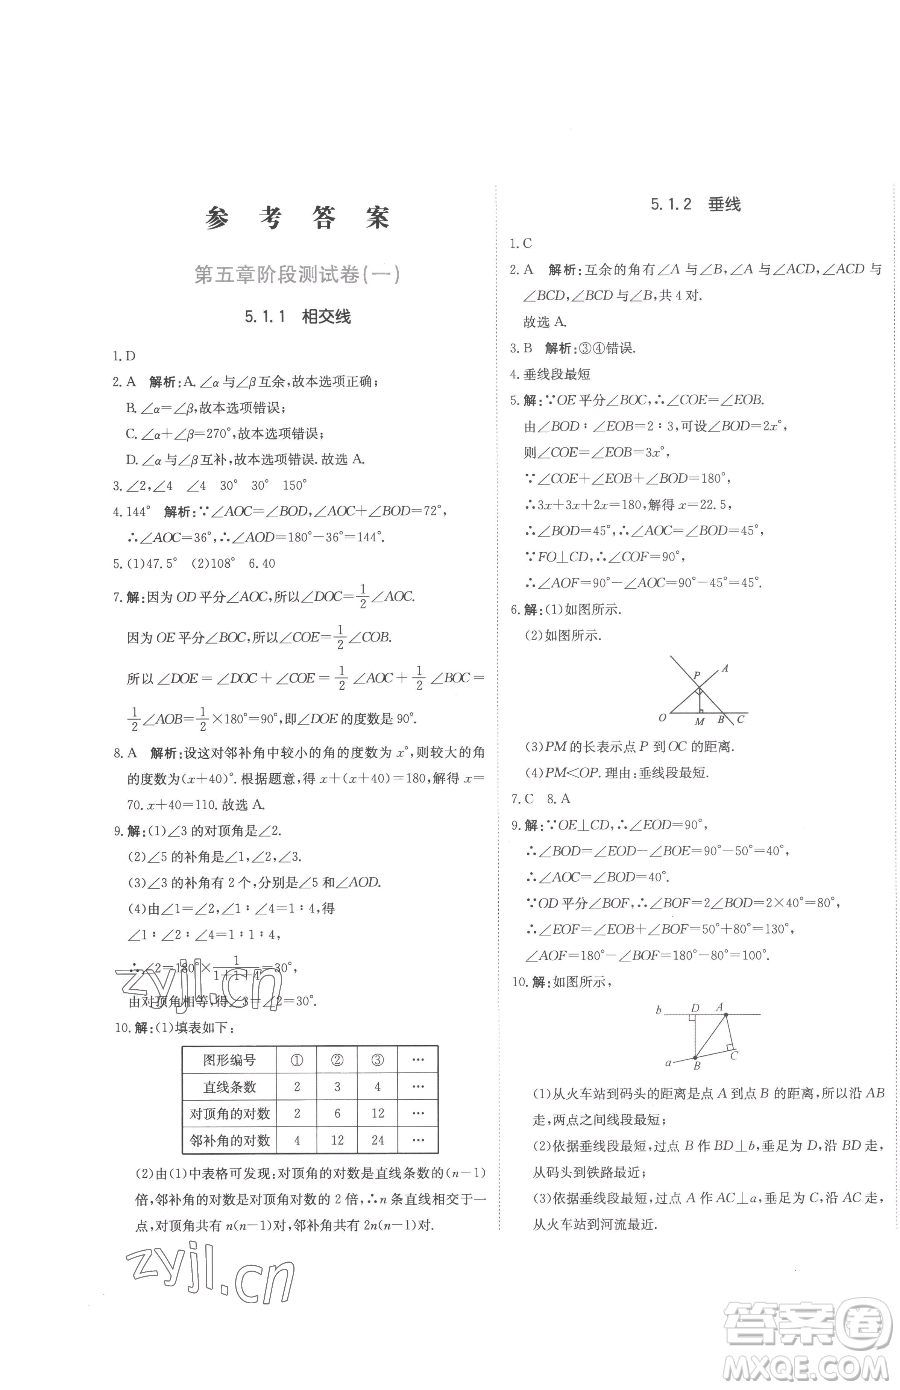 参考答案
第五章阶段测试卷(一)
5.1.1 相交线
1. D
2. A 解析:A.∠α与∠β互余,故本选项正确;
B.∠α=∠β,故本选项错误;
C.∠α+∠β=270°,故本选项错误;
D.∠α与∠β互补,故本选项错误.故选A.
3. ∠2,∠4 ∠4 30° 30° 150°
4. 144° 解析:∵∠AOC=∠BOD,∠AOC+∠BOD=72°,
∴∠AOC=36°,∴∠AOD=180°-36°=144°.
5. (1)47.5° (2)108° 6.40
7. 解:因为OD平分∠AOC,所以∠DOC=1/2∠AOC.
因为OE平分∠BOC,所以∠COE=1/2∠COB.
所以∠DOE=∠DOC+∠COE=1/2∠AOC+1/2∠BOC=
1/2∠AOB=1/2×180°=90°,即∠DOE的度数是90°.
8. A 解析:设这对邻补角中较小的角的度数为x°,则较大的角
的度数为(x+40)°.根据题意,得x+(x+40)=180,解得x=
70.x+40=110.故选A.
9. 解:(1)∠3的对顶角是∠2.
(2)∠5的补角是∠1,∠3.
(3)∠3的补角有2个,分别是∠5和∠AOD.
(4)由∠1=∠2,∠1∶∠4=1∶4,得
∠1∶∠2∶∠4=1∶1∶4,
∴∠2=180°×1/(1+1+4)=30°,
由对顶角相等,得∠3=∠2=30°.
10. 解:(1)填表如下:
图形编号 ① ② ③ …
直线条数 2 3 4 …
对顶角的对数 2 6 12 …
邻补角的对数 4 12 24 …
(2)由(1)中表格可发现:对顶角的对数是直线条数的(n-1)
倍,邻补角的对数是对顶角对数的2倍,∴n条直线相交于一
点,对顶角共有n(n-1)对,邻补角共有2n(n-1)对.
5.1.2 垂线
1. C
2. A 解析:互余的角有∠A与∠B,∠A与∠ACD,∠ACD与
∠BCD,∠BCD与∠B,共4对.
故选A.
3. B 解析:③④错误.
4. 垂线段最短
5. 解:∵OE平分∠BOC,∴∠COE=∠EOB.
由∠BOD∶∠EOB=2∶3,可设∠BOD=2x°,
则∠COE=∠EOB=3x°.
∵∠COE+∠EOB+∠BOD=180°,
∴3x+3x+2x=180,解得x=22.5,
∴∠BOD=45°,∴∠AOC=∠BOD=45°.
∵FO⊥CD,∴∠COF=90°,
∴∠AOF=90°-∠AOC=90°-45°=45°.
6. 解:(1)如图所示.
(2)如图所示.
P A
O M B C
(3)PM的长表示点P到OC的距离.
(4)PM<OP.理由:垂线段最短.
7. C 8. A
9. 解:∵OE⊥CD,∴∠EOD=90°,
∴∠BOD=∠EOD-∠BOE=90°-50°=40°,
∴∠AOC=∠BOD=40°.
∵OD平分∠BOF,∴∠BOF=2∠BOD=2×40°=80°,
∴∠EOF=∠BOE+∠BOF=50°+80°=130°,
∠AOF=180°-∠BOF=180°-80°=100°.
10. 解:如图所示,
b D A
a B C
(1)从火车站到码头的距离是点A到点B的距离,所以沿AB
走,两点之间线段最短;
(2)依据垂线段最短,过点B作BD⊥b,垂足为D,沿BD走,
从码头到铁路最近;
(3)依据垂线段最短,过点A作AC⊥a,垂足为C,沿AC走,
从火车站到河流最近.
zyjl.cn
zyjl.cn
答案圈
MXQE.COM